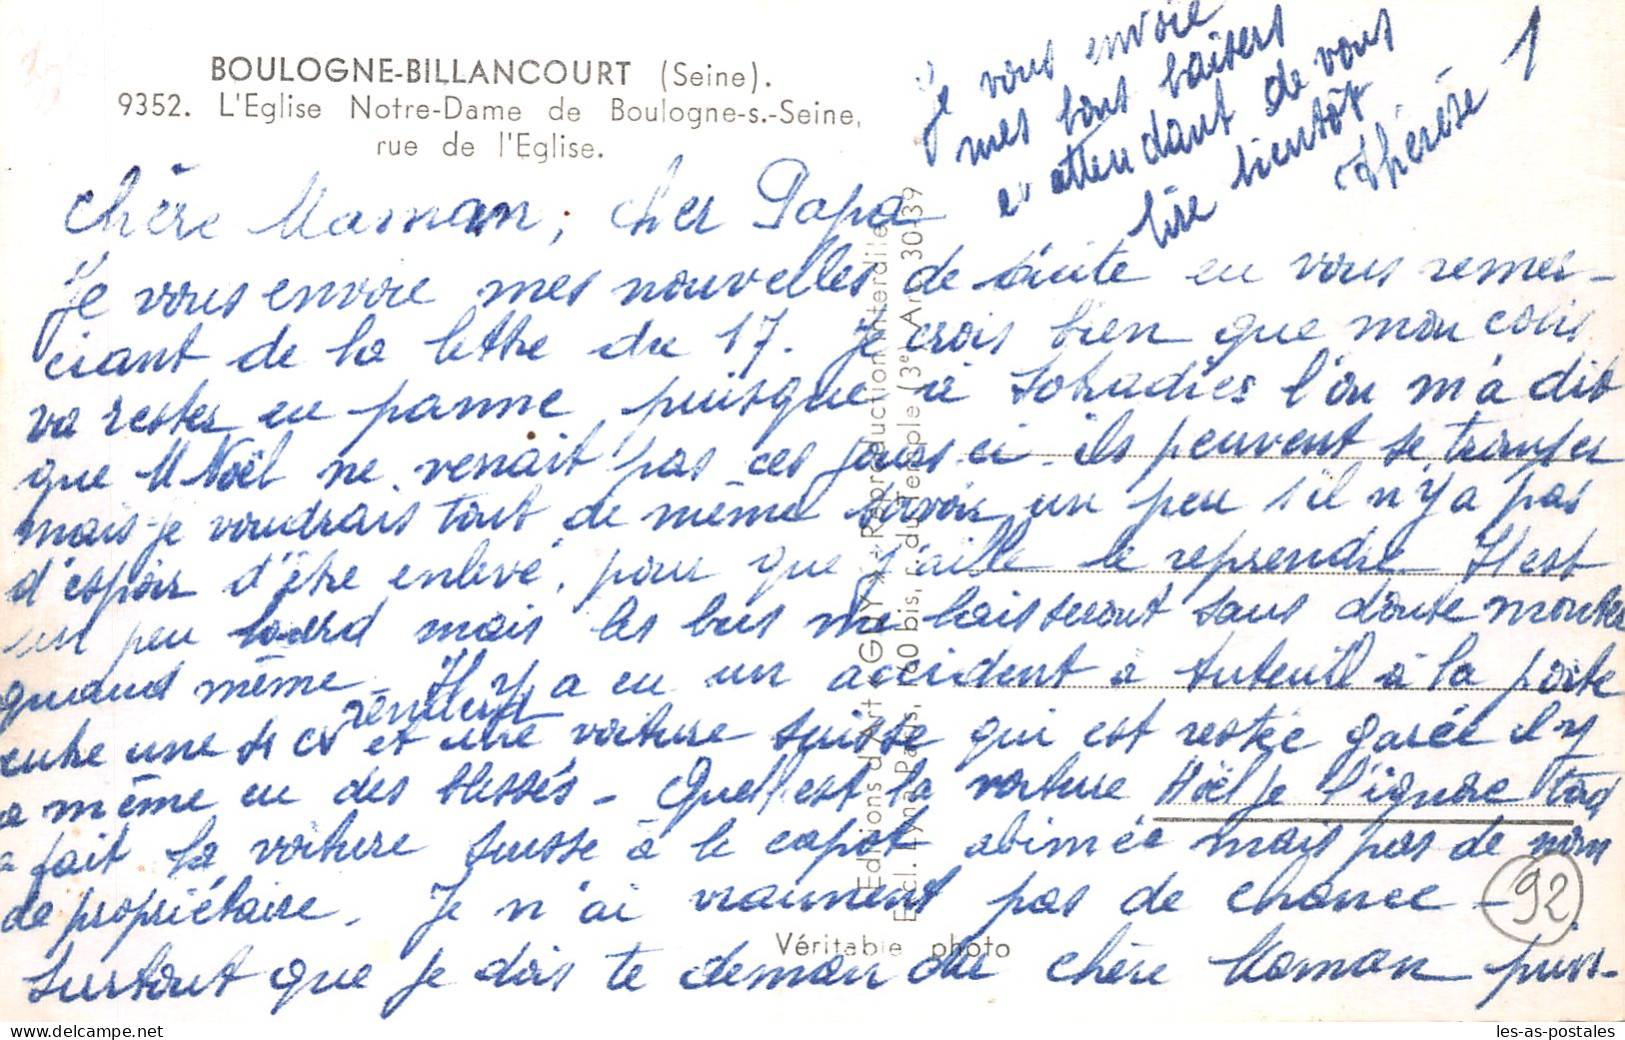 BOULOGNE-BILLANCOURT (Seine).
9352. L'Eglise Notre-Dame de Boulogne-s.-Seine,
rue de l'Eglise.
Je vous envoie
mes bons baisers
en attendant de vous
lire bientôt
Thérèse
1
Chère Maman, cher Papa
Je vous envoie mes nouvelles de suite en vous remer-
ciant de la lettre du 17. Je crois bien que mon colis
va rester en panne puisque à l'on m'a dit
que M Noël ne venait pas ces jours ci. ils peuvent se tromper
mais je voudrais tout de même savoir un peu s'il n'y a pas
d'espoir d'être enlevé, pour que j'aille le reprendre Il est
un peu lourd mais les bus me laisseront sans doute monter
quand même. Il y a eu un accident à Auteuil à la porte
entre une 4 cv et une voiture suisse qui est restée garée il y
a même eu des blessés - Quelle est la voiture Noël je l'ignore
a fait la voiture suisse à le capot abimée mais pas de nom
de propriétaire. Je n'ai vraiment pas de chance -
Surtout que je dois te demander chère Maman puis-
Editions d'Art "GUY" - Reproduction interdite
Paris, 160 bis, r. du Temple (3e Arr.) 30-39
Véritable photo
92
www.delcampe.net
les-as-postales